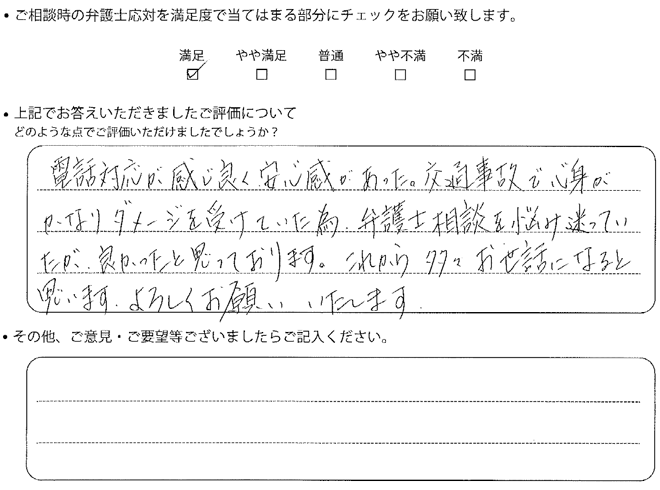 • ご相談時の弁護士応対を満足度で当てはまる部分にチェックをお願い致します。
満足 やや満足 普通 やや不満 不満
☑ ☐ ☐ ☐ ☐
• 上記でお答えいただきましたご評価について
どのような点でご評価いただけましたでしょうか？
電話対応が感じ良く安心感があった。交通事故で心身が
かなりダメージを受けていた為、弁護士相談を悩み迷ってい
たが、良かったと思っております。これから多々お世話になると
思います。よろしくお願いいたします。
• その他、ご意見・ご要望等ございましたらご記入ください。